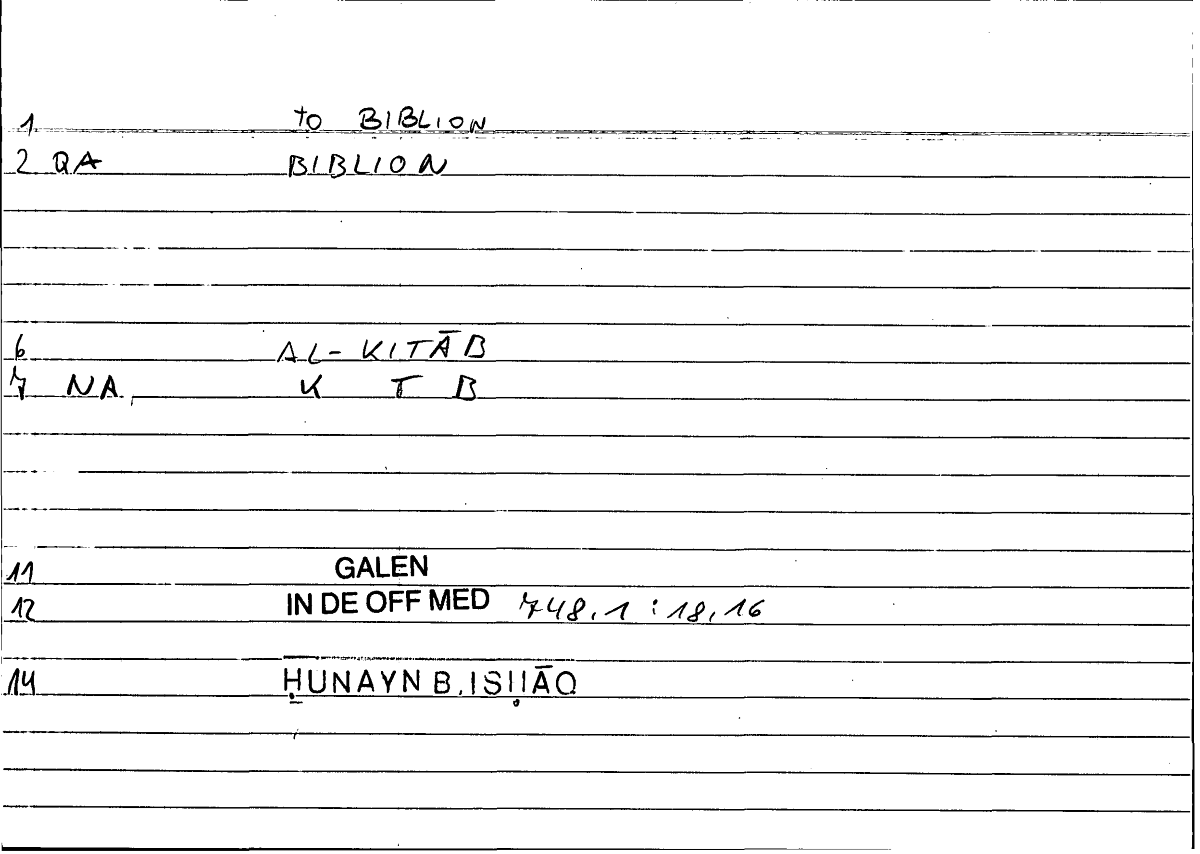 1 to BIBLION
2 QA BIBLION
6 AL-KITĀB
7 NA K T B
11 GALEN
12 IN DE OFF MED 748,1 : 18,16
14 ḤUNAYN B. ISḤĀQ